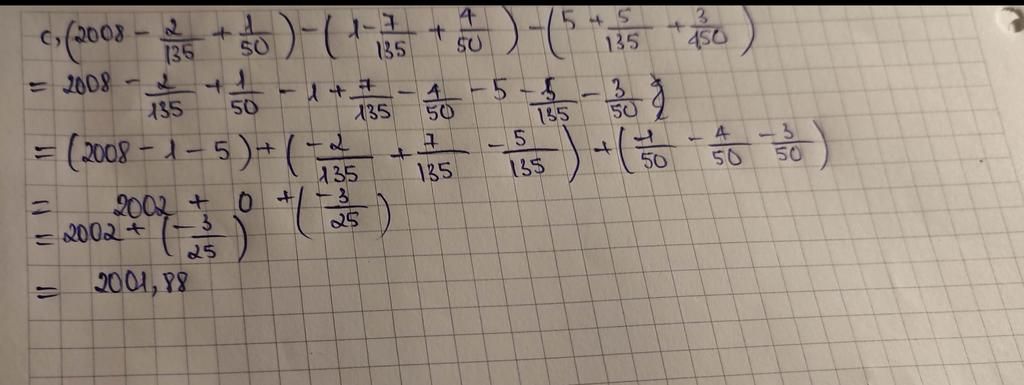 c, (2008 - 2/135 + 1/50) - (1 - 7/135 + 4/50) - (5 + 5/135 + 3/450)
= 2008 - 2/135 + 1/50 - 1 + 7/135 - 4/50 - 5 - 5/135 - 3/50
= (2008 - 1 - 5) + (-2/135 + 7/135 - 5/135) + (-1/50 - 4/50 - 3/50)
= 2002 + 0 + (-3/25)
= 2002 + (-3/25)
= 2001,88